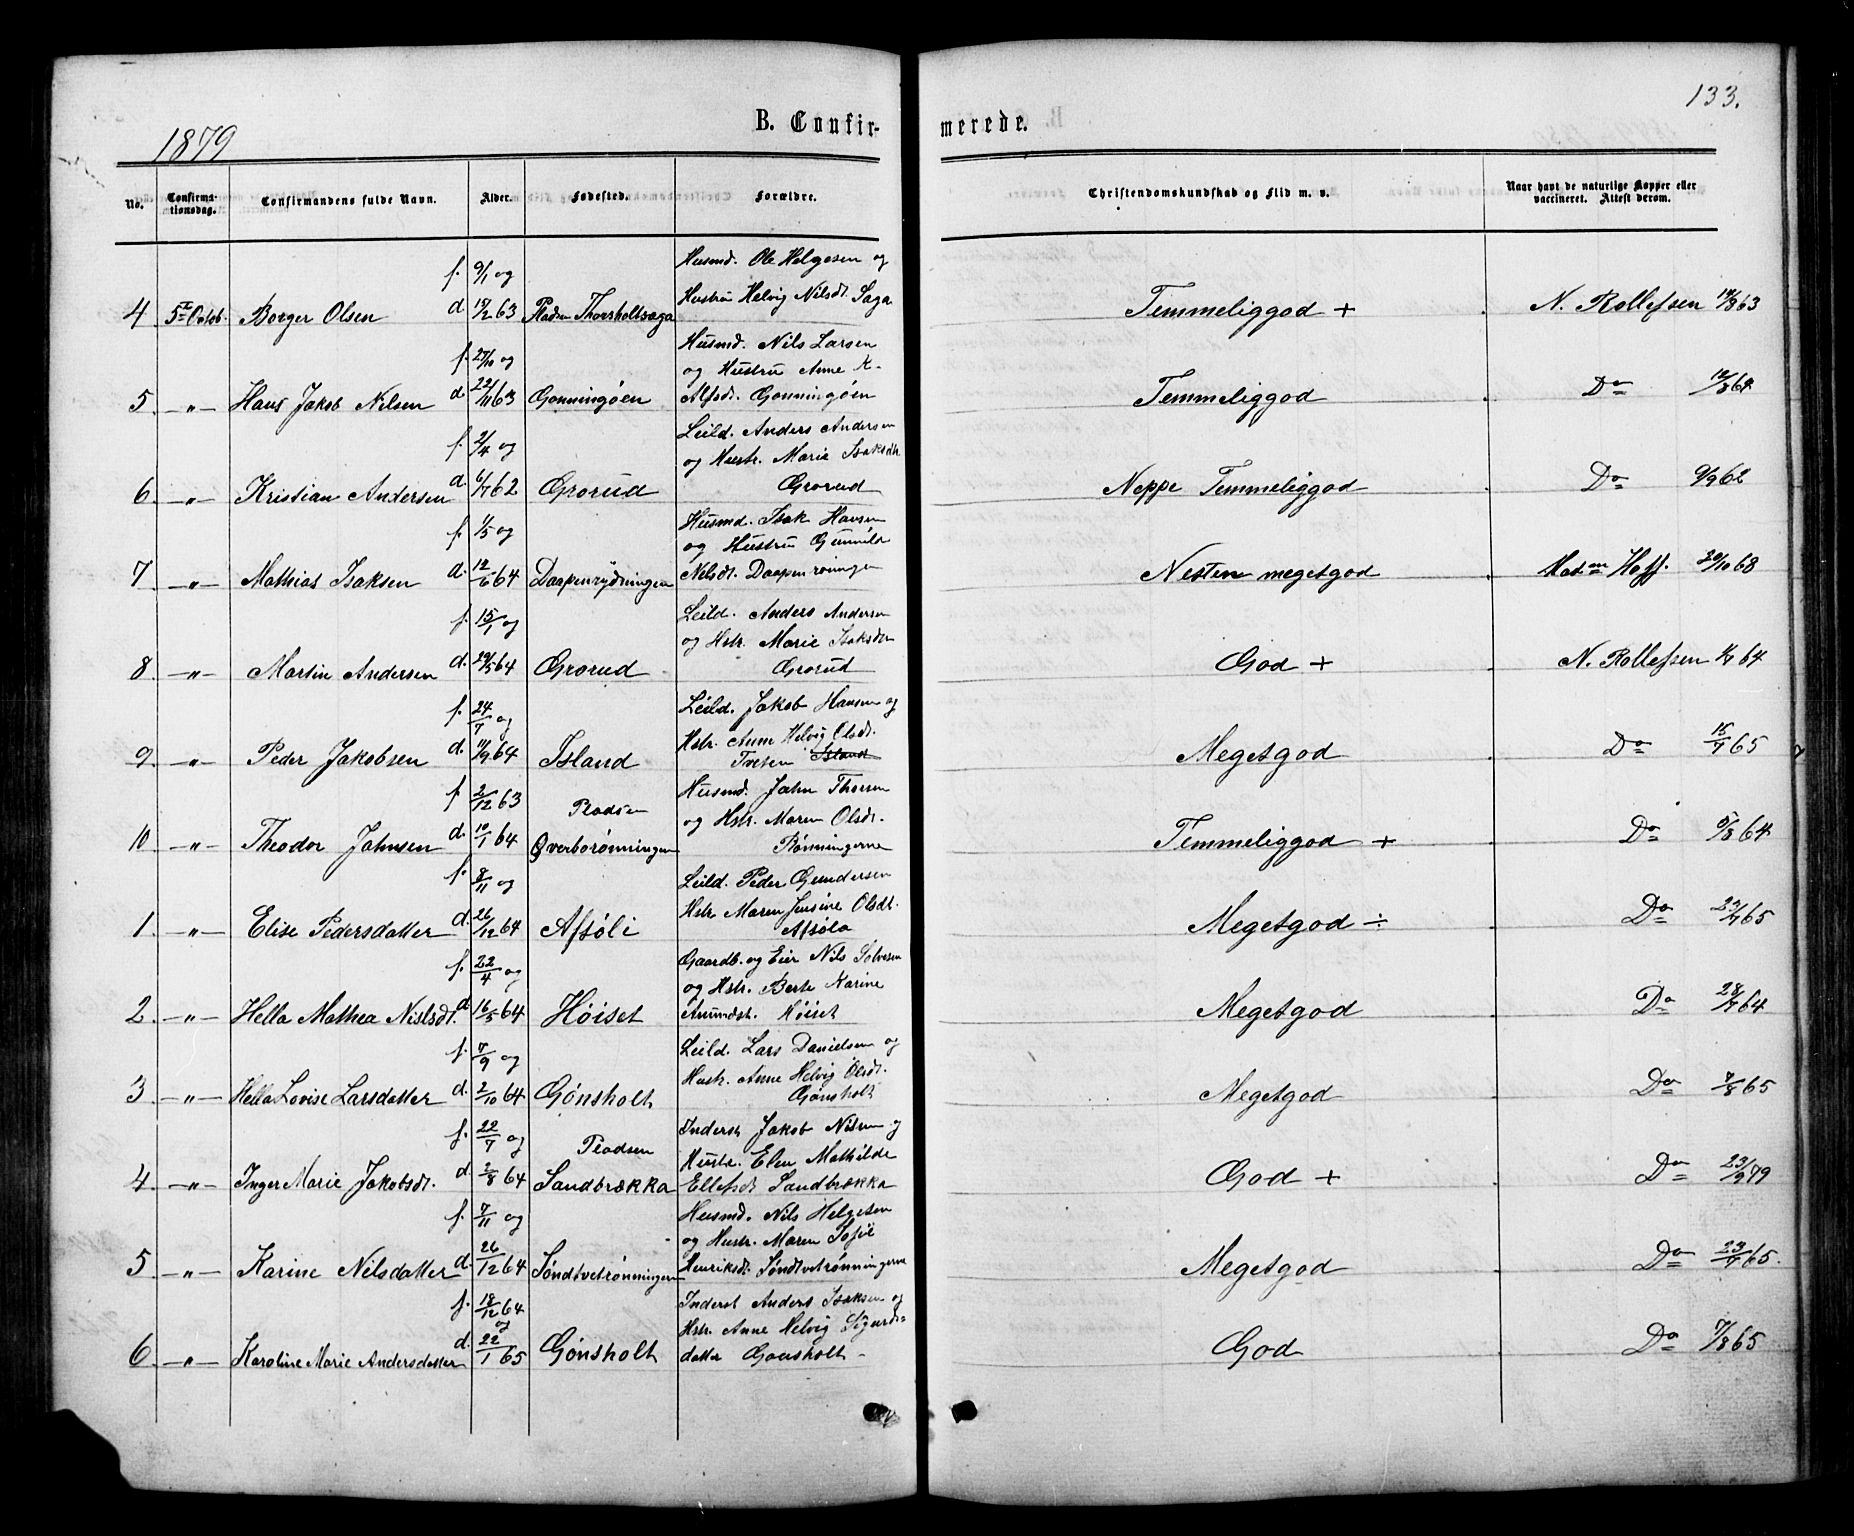 133.
1879
B. Confir-
merede.
No.
Confirma-
tionsdag.
Confirmandens fulde Navn.
Alder.
Fødested.
Forældre.
Christendomskundskab og Flid m. v.
Naar havt de naturlige Kopper eller
vaccineret. Attest derom.
f. 9/1 og
Husmd. Ole Helgesen og
4 5te Octob. Borger Olsen d. 15/2 63 Pladsen Thorsholtsaga Hustru Helvig Nilsdt. Saga Temmeliggod + N. Rollefsen 18/8 63
f. 27/10 og
Husmd. Nils Larsen
og Hustru Anne K.
5. —"— Hans Jakob Nilsen d. 22/11 63 Gonningøen Alfsdt. Gonningøen Temmeliggod Do 12/8 64
f. 2/4 og
Leild. Anders Andersen
og Hustr. Marie Isaksdtr.
6. —"— Kristian Andersen d. 6/7 62 Grorud Grorud Neppe Temmeliggod Do 9/9 62
f. 1/5 og
Husmd. Isak Hansen
og Hustru Gunnild
7. —"— Mathias Isaksen d. 12/6 64 Daapenrydningen Nilsdt. Daapenrøningen Nesten megetgod Madm Hoff. 20/10 68
f. 15/1 og
Leild. Anders Andersen
og Hstr. Marie Isaksdtr
8. —"— Martin Andersen d. 29/5 64 Grorud Grorud God + N. Rollefsen 1/7 64
f. 24/7 og
Leild. Jakob Hansen og
Hstr. Anne Helvig Olsdt.
9. —"— Peder Jakobsen d. 11/9 64 Island Tveten Island Megetgod Do 15/7 65
f. 2/12 63
Pladsen
Husmd. John Thorsen
og Hstr. Maren Olsdt.
10. —"— Theodor Johnsen d. 10/1 64 Øverborønningen Rønningerne Temmeliggod + Do 5/8 64
f. 8/11 og
Leild. Peder Gundersen
Hstr. Maren Jensine Olsdt.
1. —"— Elise Pedersdatter d. 26/12 64 Afsøli Afsøla Megetgod ÷ Do 23/7 65
f. 22/4 og
Gaardb. og Eier Nils Solvesen
og Hstr. Berte Karine
2. —"— Hella Mathea Nislsdt. d. 16/5 64 Høiset Amundst. Høiset Megetgod Do 28/7 64
f. 7/9 og
Leild. Lars Danielsen og
Hustr. Anne Helvig Olsdt.
3. —"— Hella Lovise Larsdatter d. 2/10 64 Gønsholt Gønsholt Megetgod Do 7/8 65
f. 22/7 og
Pladsen
Inderst Jakob Nilsen og
Hustr. Elen Mathilde
4. —"— Inger Marie Jakobsdt. d. 2/8 64 Sandbrækka Ellefsdt. Sandbrækka God + Do 23/9 79
f. 7/11 og
Husmd. Nils Helgesen
og Hustr. Maren Sofie
5. —"— Karine Nilsdatter d. 26/12 64 Søndtvetrønningen Henriksdt. Søndtvetrønningerne Megetgod Do 23/7 65.
f. 18/12 64
og
Inderst Anders Isaksen og
Hstr. Anne Helvig Sigurds-
6. —"— Karoline Marie Andersdatter d. 22/1 65 Gønsholt datter Gonsholt God Do 7/8 65